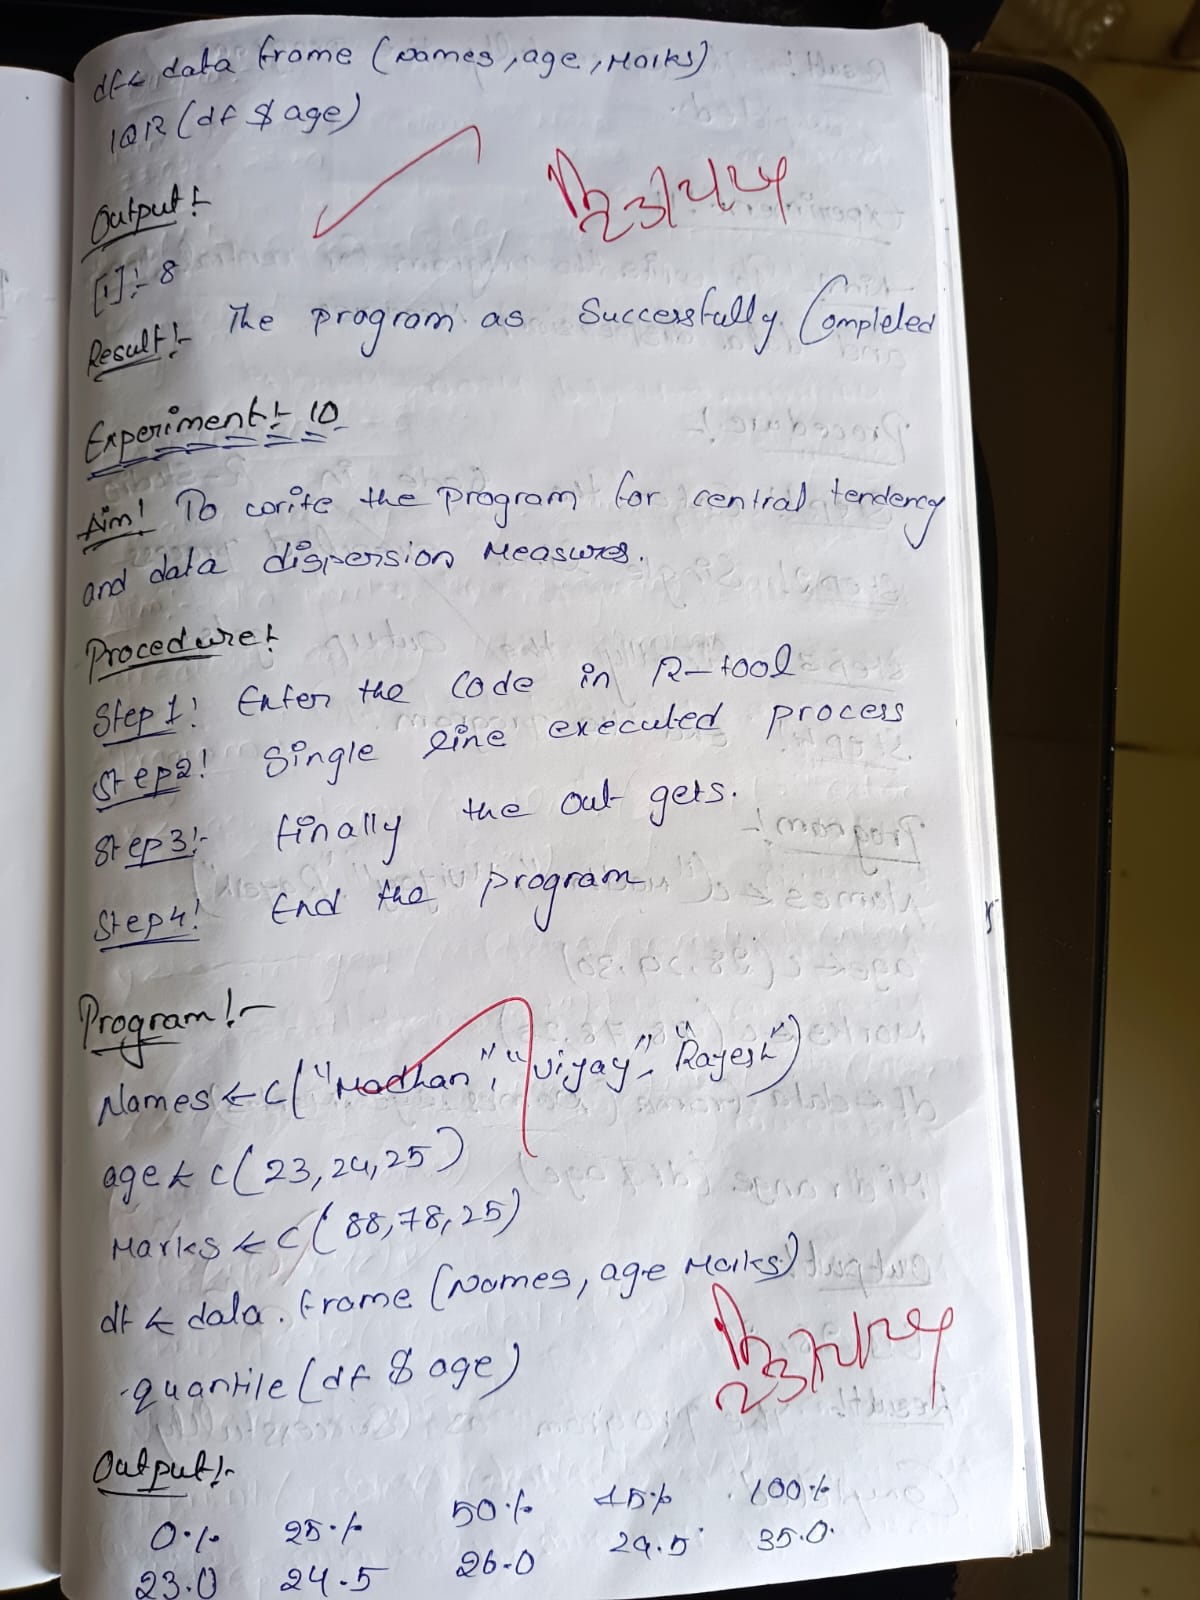 df← data frame (Names, age, Marks)
IQR (df $ age)
Output:-
[1]:- 8
Result:- The program as Successfully Completed
Experiment:- 10
Aim: To write the program for central tendency
and data dispersion Measures.
Procedure:-
Step 1: Enter the Code in R-tool
Step2: Single line executed process
Step3:- finally the out gets.
Step4: End the program
Program:-
Names ← c("Madhan", "Vijay", "Rajesh")
age ← c(23,24,25)
Marks ← c(88,78,25)
df ← data.frame (Names, age Marks)
quantile (df $ age)
Output:-
0% 25% 50% 75% 100%
23.0 24.5 26.0 29.5 35.0